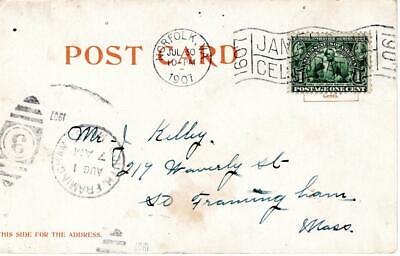 POST CARD
NORFOLK, VA.
JUL 30
10-PM
1907
1607 JAMESTOWN 1907
CEL
POSTAGE ONE CENT
1 1
Mr J Kelley
219 Waverly St
So Framingham
Mass.
SO. FRAMINGHAM
AUG 1
7 AM
1907
3
THIS SIDE FOR THE ADDRESS.
1907